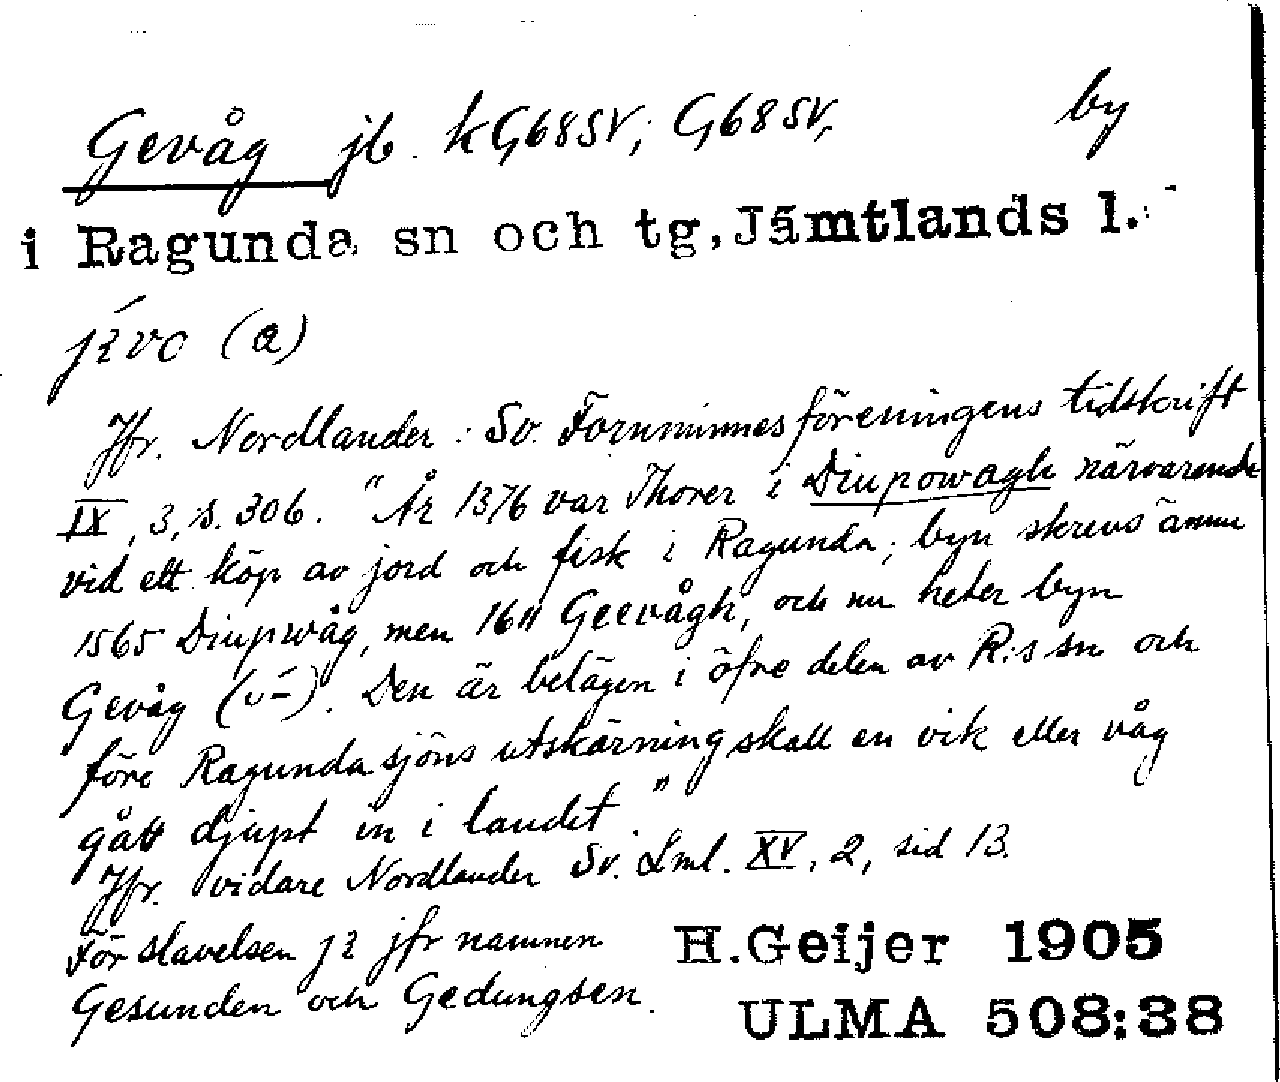 Gevåg jb. kG68SV; G68SV, by
i Ragunda sn och tg, Jämtlands l.
(a)
Jfr. Nordlander: Sv. Fornminnesföreningens tidskrift
IX, 3, s. 306. "År 1376 var Thorer i Diupowagh närvarende
vid ett köp av jord och fisk i Ragunda; byn skrevs ännu
1565 Diupwåg, men 1611 Geevågh, och nu heter byn
Gevåg (). Den är belägen i öfre delen av R:s sn och
före Ragundasjöns utskärning skall en vik eller våg
gått djupt in i landet."
Jfr. vidare Nordlander Sv. Lml. XV, 2, sid 13.
För stavelsen jfr namnen
Gesunden och Gedungsen.
H.Geijer 1905
ULMA 508:38